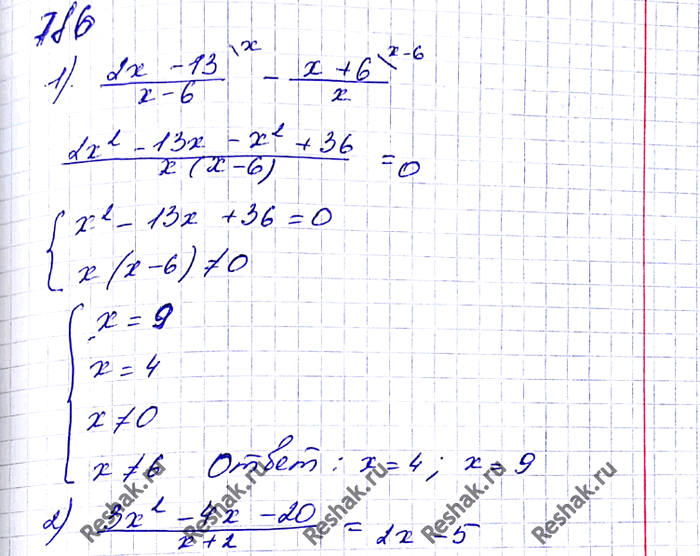 786
1). (2x - 13)/(x - 6) \x - (x + 6)/x \x-6
(2x² - 13x - x² + 36)/(x(x-6)) = 0
{ x² - 13x + 36 = 0
x(x-6) ≠ 0
{ x = 9
x = 4
x ≠ 0
x ≠ 6 Ответ: x = 4; x = 9
2) (3x² - 4x - 20)/(x + 2) = 2x - 5
Reshak.ru Reshak.ru Reshak.ru Reshak.ru Reshak.ru